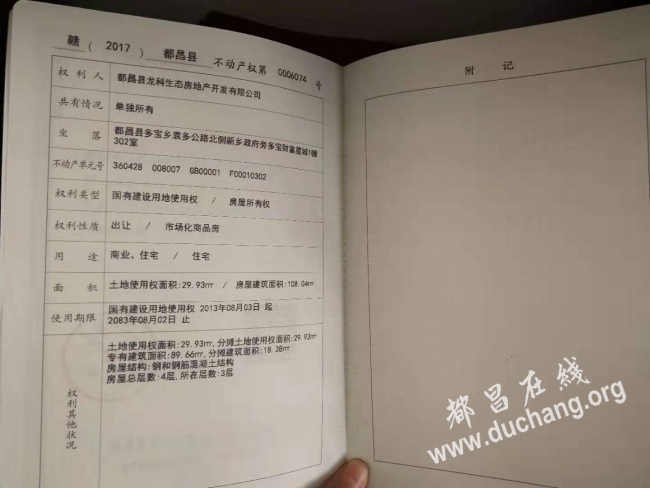 赣 ( 2017 ) 都昌县 不动产权第 0006074 号
权利人 都昌县龙科生态房地产开发有限公司
共有情况 单独所有
坐落 都昌县多宝乡袁多公路北侧新乡政府旁多宝财富星城1幢
302室
不动产单元号 360428 008007 GB00001 F00010302
权利类型 国有建设用地使用权 / 房屋所有权
权利性质 出让 / 市场化商品房
用途 商业、住宅 / 住宅
面积 土地使用权面积:29.93㎡ / 房屋建筑面积:108.04㎡
使用期限 国有建设用地使用权 2013年08月03日 起
2083年08月02日 止
权利其他状况
土地使用权面积:29.93㎡,分摊土地使用权面积:29.93㎡
专有建筑面积:89.66㎡,分摊建筑面积:18.38㎡
房屋结构:钢和钢筋混凝土结构
房屋总层数:4层,所在层数:3层
附记
都昌在线
www.duchang.org